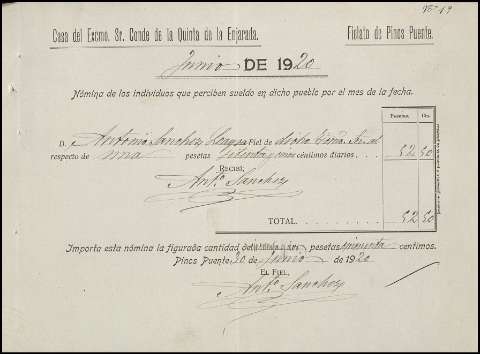 Nº 49
Casa del Excmo. Sr. Conde de la Quinta de la Enjarada. Fielato de Pinos Puente.
Junio DE 1920
Nómina de los individuos que perciben sueldo en dicho pueblo por el mes de la fecha.
Pesetas. Cts.
D. Antonio Sanchez Fiel de dicho al
respecto de una pesetas setenta y cinco céntimos diarios 52 50
RECIBÍ,
Antº Sanchez
TOTAL 52 50
Importa esta nómina la figurada cantidad de pesetas cincuenta céntimos.
Pinos Puente 30 de Junio de 1920
EL FIEL,
Antº Sanchez